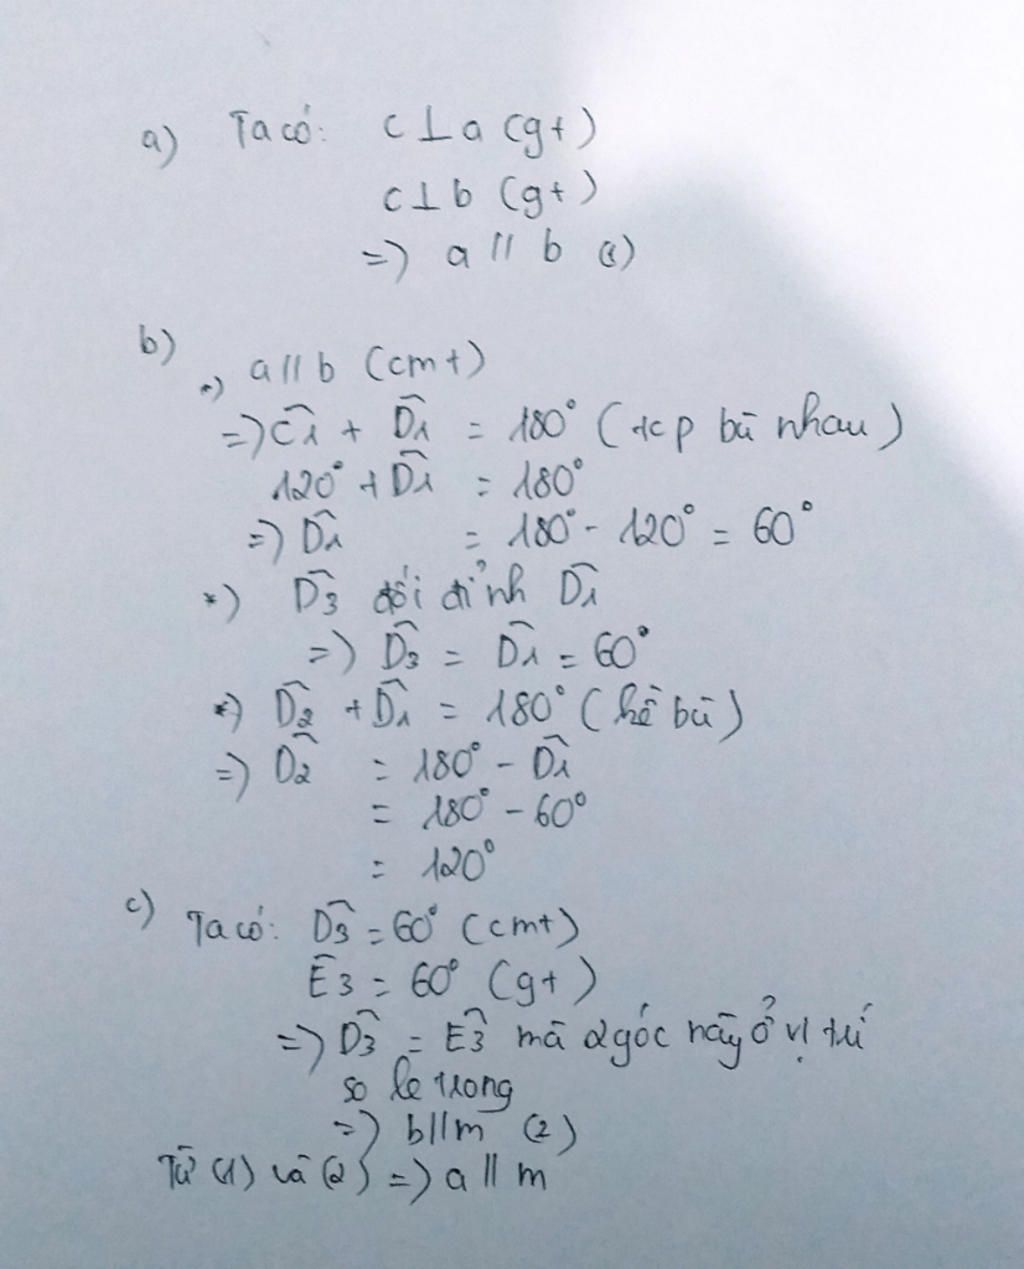 a) Ta có: c ⊥ a (gt)
c ⊥ b (gt)
=> a // b (1)
b)
*) a // b (cmt)
=> Ĉ1 + D̂1 = 180° (tcp bù nhau)
120° + D̂1 = 180°
=> D̂1 = 180° - 120° = 60°
*) D̂3 đối đỉnh D̂1
=> D̂3 = D̂1 = 60°
*) D̂2 + D̂1 = 180° (kề bù)
=> D̂2 = 180° - D̂1
= 180° - 60°
= 120°
c) Ta có: D̂3 = 60° (cmt)
Ê3 = 60° (gt)
=> D̂3 = Ê3 mà 2 góc này ở vị trí
so le trong
=> b // m (2)
Từ (1) và (2) => a // m